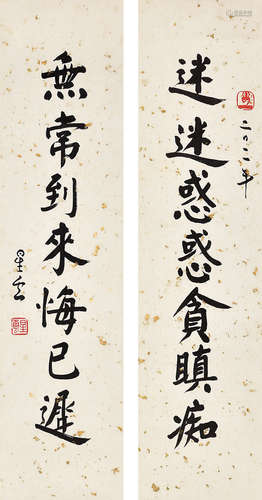 二〇一一年
迷迷惑惑貪瞋痴
無常到來悔已遲
星雲